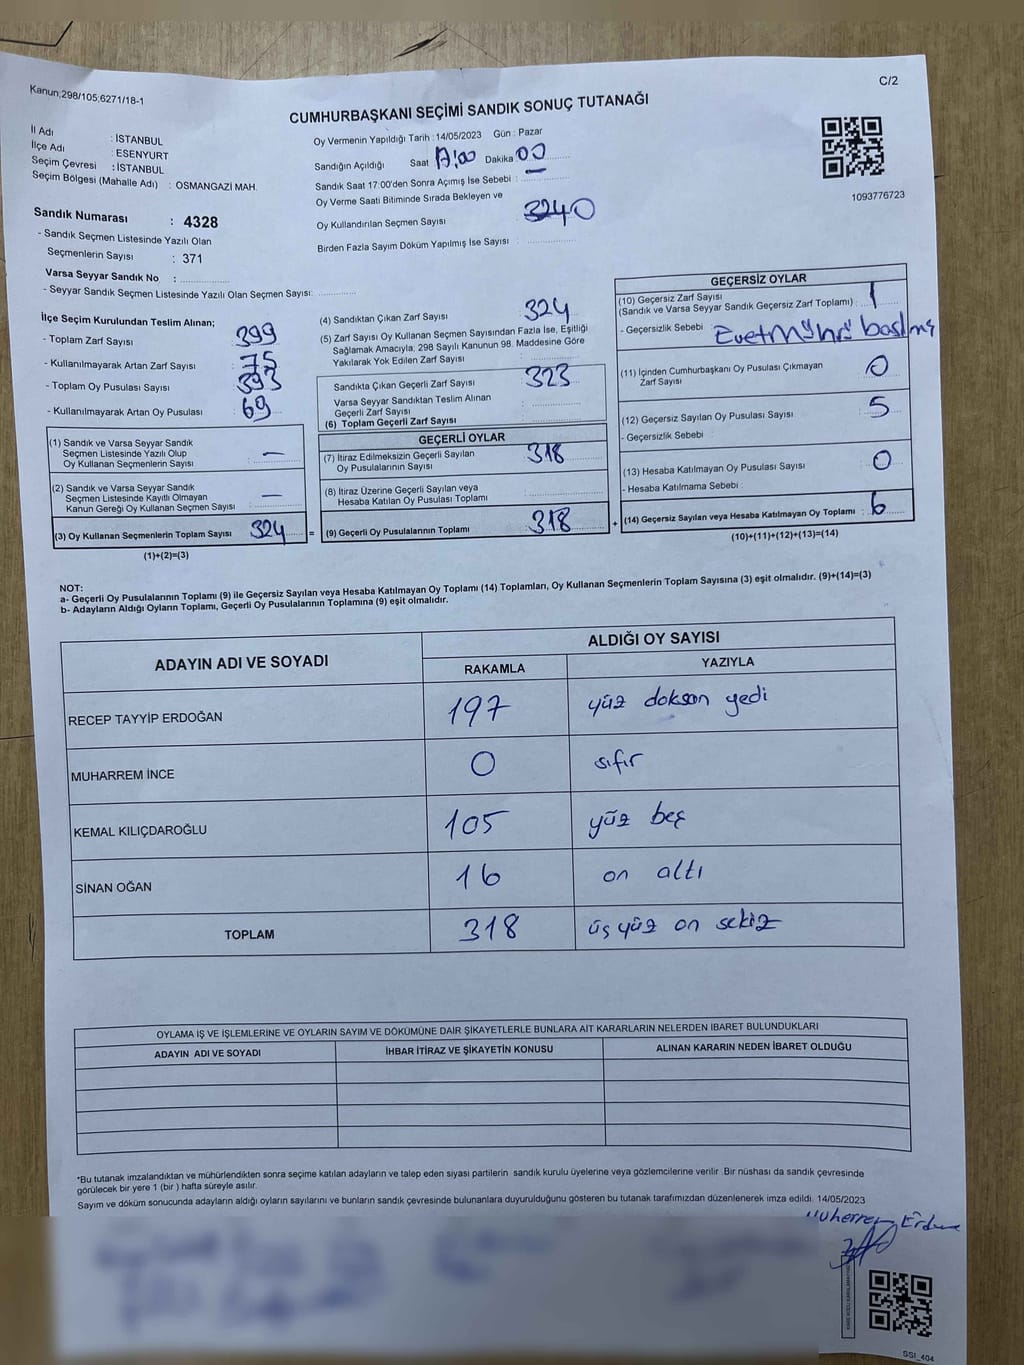 Kanun;298/105;6271/18-1
C/2
CUMHURBAŞKANI SEÇİMİ SANDIK SONUÇ TUTANAĞI
İl Adı : İSTANBUL
İlçe Adı : ESENYURT
Seçim Çevresi : İSTANBUL
Seçim Bölgesi (Mahalle Adı) : OSMANGAZİ MAH.
Sandık Numarası : 4328
- Sandık Seçmen Listesinde Yazılı Olan
Seçmenlerin Sayısı : 371
Varsa Seyyar Sandık No :
- Seyyar Sandık Seçmen Listesinde Yazılı Olan Seçmen Sayısı:
Oy Vermenin Yapıldığı Tarih : 14/05/2023 Gün : Pazar
Sandığın Açıldığı Saat 17:00 Dakika 00
Sandık Saat 17:00'den Sonra Açımış İse Sebebi : —
Oy Verme Saati Bitiminde Sırada Bekleyen ve
Oy Kullandırılan Seçmen Sayısı 0
Birden Fazla Sayım Döküm Yapılmış İse Sayısı :
1093776723
İlçe Seçim Kurulundan Teslim Alınan;
- Toplam Zarf Sayısı : 399
- Kullanılmayarak Artan Zarf Sayısı : 75
- Toplam Oy Pusulası Sayısı : 393
- Kullanılmayarak Artan Oy Pusulası : 69
(1) Sandık ve Varsa Seyyar Sandık
Seçmen Listesinde Yazılı Olup
Oy Kullanan Seçmenlerin Sayısı : —
(2) Sandık ve Varsa Seyyar Sandık
Seçmen Listesinde Kayıtlı Olmayan
Kanun Gereği Oy Kullanan Seçmen Sayısı : —
(3) Oy Kullanan Seçmenlerin Toplam Sayısı 324 =
(1)+(2)=(3)
(4) Sandıktan Çıkan Zarf Sayısı 324
(5) Zarf Sayısı Oy Kullanan Seçmen Sayısından Fazla İse, Eşitliği
Sağlamak Amacıyla; 298 Sayılı Kanunun 98. Maddesine Göre
Yakılarak Yok Edilen Zarf Sayısı
Sandıkta Çıkan Geçerli Zarf Sayısı : 323
Varsa Seyyar Sandıktan Teslim Alınan
Geçerli Zarf Sayısı
(6) Toplam Geçerli Zarf Sayısı
GEÇERLİ OYLAR
(7) İtiraz Edilmeksizin Geçerli Sayılan
Oy Pusulalarının Sayısı : 318
(8) İtiraz Üzerine Geçerli Sayılan veya
Hesaba Katılan Oy Pusulası Toplamı
(9) Geçerli Oy Pusulalarının Toplamı : 318 +
GEÇERSİZ OYLAR
(10) Geçersiz Zarf Sayısı
(Sandık ve Varsa Seyyar Sandık Geçersiz Zarf Toplamı) : 1
- Geçersizlik Sebebi : Evet Mührü basılmış
(11) İçinden Cumhurbaşkanı Oy Pusulası Çıkmayan
Zarf Sayısı 0
(12) Geçersiz Sayılan Oy Pusulası Sayısı : 5
- Geçersizlik Sebebi
(13) Hesaba Katılmayan Oy Pusulası Sayısı : 0
- Hesaba Katılmama Sebebi :
(14) Geçersiz Sayılan veya Hesaba Katılmayan Oy Toplamı : 6
(10)+(11)+(12)+(13)=(14)
NOT:
a- Geçerli Oy Pusulalarının Toplamı (9) ile Geçersiz Sayılan veya Hesaba Katılmayan Oy Toplamı (14) Toplamları, Oy Kullanan Seçmenlerin Toplam Sayısına (3) eşit olmalıdır. (9)+(14)=(3)
b- Adayların Aldığı Oyların Toplamı, Geçerli Oy Pusulalarının Toplamına (9) eşit olmalıdır.
ADAYIN ADI VE SOYADI ALDIĞI OY SAYISI
RAKAMLA YAZIYLA
RECEP TAYYİP ERDOĞAN 197 yüz doksan yedi
MUHARREM İNCE 0 sıfır
KEMAL KILIÇDAROĞLU 105 yüz beş
SİNAN OĞAN 16 on altı
TOPLAM 318 üç yüz on sekiz
OYLAMA İŞ VE İŞLEMLERİNE VE OYLARIN SAYIM VE DÖKÜMÜNE DAİR ŞİKAYETLERLE BUNLARA AİT KARARLARIN NELERDEN İBARET BULUNDUKLARI
ADAYIN ADI VE SOYADI İHBAR İTİRAZ VE ŞİKAYETİN KONUSU ALINAN KARARIN NEDEN İBARET OLDUĞU
*Bu tutanak imzalandıktan ve mühürlendikten sonra seçime katılan adayların ve talep eden siyasi partilerin sandık kurulu üyelerine veya gözlemcilerine verilir .Bir nüshası da sandık çevresinde
görülecek bir yere 1 (bir ) hafta süreyle asılır.
Sayım ve döküm sonucunda adayların aldığı oyların sayılarını ve bunların sandık çevresinde bulunanlara duyurulduğunu gösteren bu tutanak tarafımızdan düzenlenerek imza edildi. 14/05/2023
SSI_404